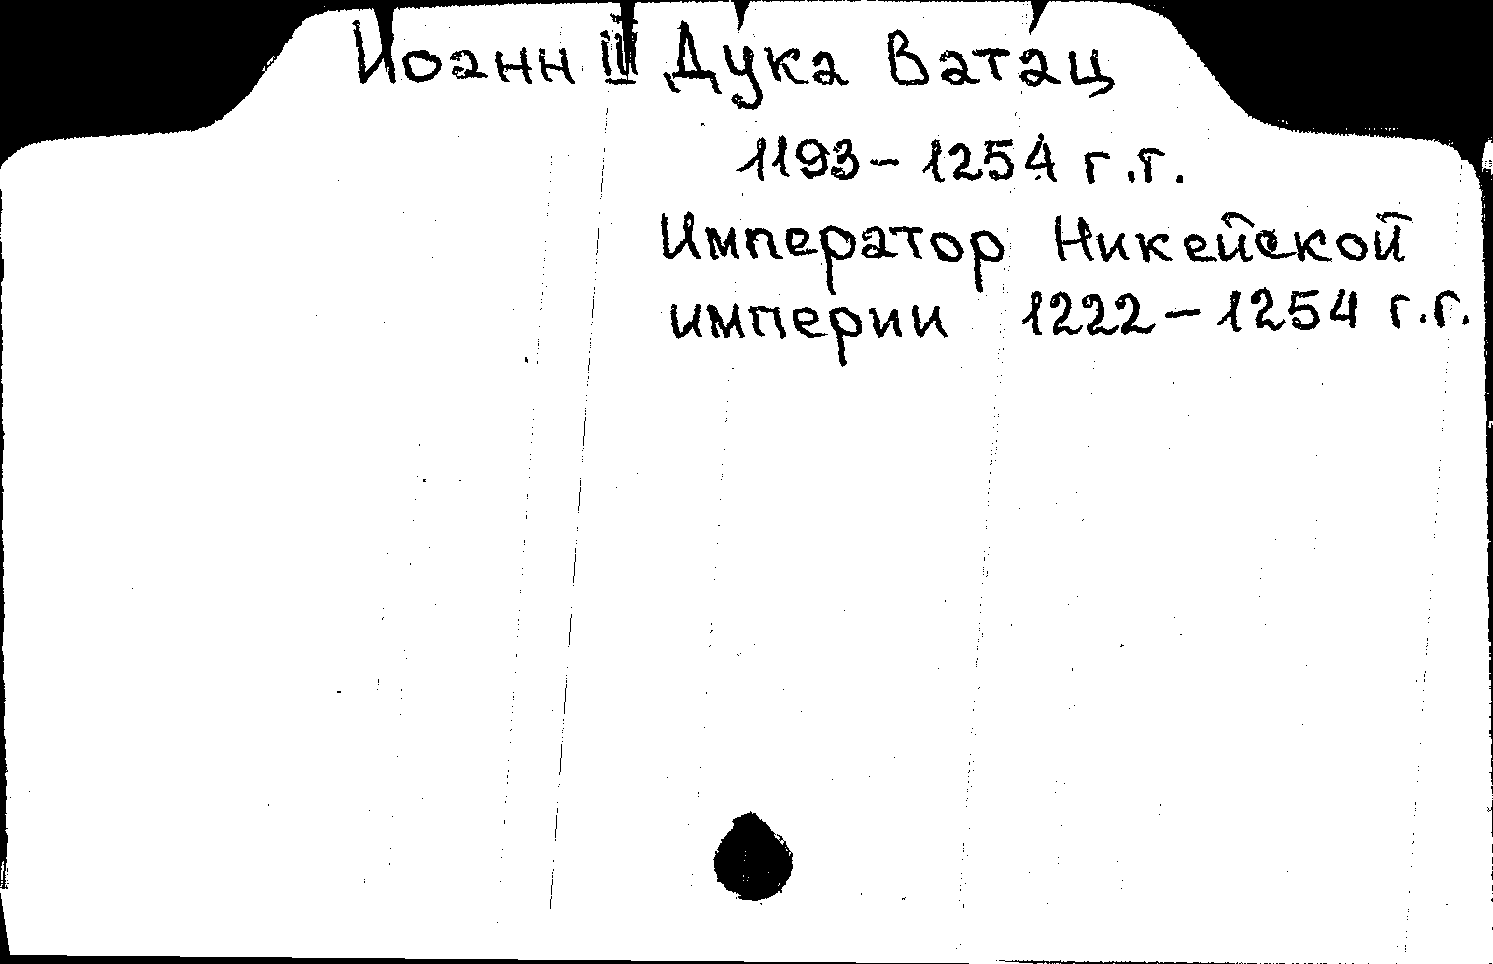 Иоанн III Дука Ватац
1193 - 1254 г.г.
Император Никейской
империи 1222 - 1254 г.г.